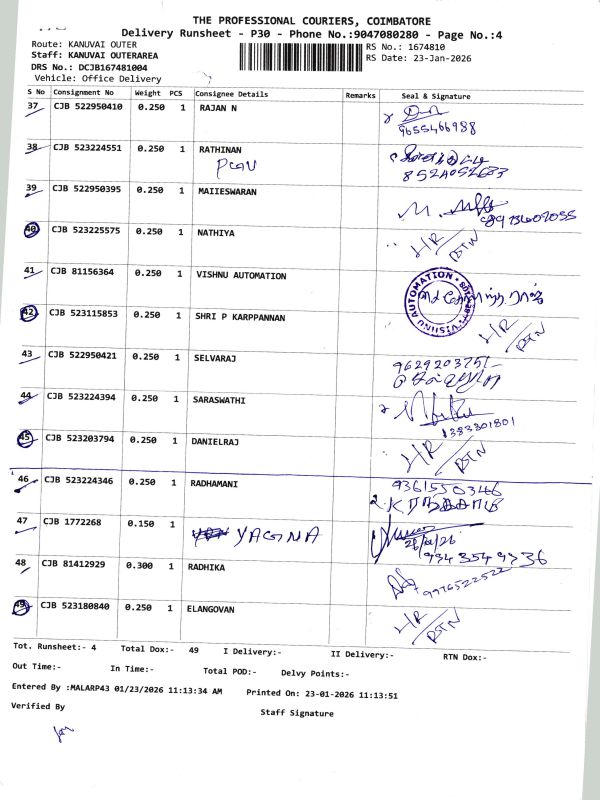 THE PROFESSIONAL COURIERS, COIMBATORE
Delivery Runsheet - P30 - Phone No.:9047080280 - Page No.:4
Route: KANUVAI OUTER
RS No.: 1674810
Staff: KANUVAI OUTERAREA
RS Date: 23-Jan-2026
DRS No.: DCJB167481004
Vehicle: Office Delivery
S No Consignment No Weight PCS Consignee Details Remarks Seal & Signature
37 CJB 522950410 0.250 1 RAJAN N
9655466988
38 CJB 523224551 0.250 1 RATHINAN
39 CJB 522950395 0.250 1 MAIIESWARAN
40 CJB 523225575 0.250 1 NATHIYA H/R RTN
41 CJB 81156364 0.250 1 VISHNU AUTOMATION
42 CJB 523115853 0.250 1 SHRI P KARPPANNAN H/R RTN
43 CJB 522950421 0.250 1 SELVARAJ 9629203751
44 CJB 523224394 0.250 1 SARASWATHI
45 CJB 523203794 0.250 1 DANIELRAJ H/R RTN
46 CJB 523224346 0.250 1 RADHAMANI 9361550346
47 CJB 1772268 0.150 1 YAGNA
48 CJB 81412929 0.300 1 RADHIKA 9976522522
49 CJB 523180840 0.250 1 ELANGOVAN H/R RTN
Tot. Runsheet:- 4 Total Dox:- 49 I Delivery:- II Delivery:- RTN Dox:-
Out Time:- In Time:- Total POD:- Delvy Points:-
Entered By :MALARP43 01/23/2026 11:13:34 AM Printed On: 23-01-2026 11:13:51
Verified By Staff Signature